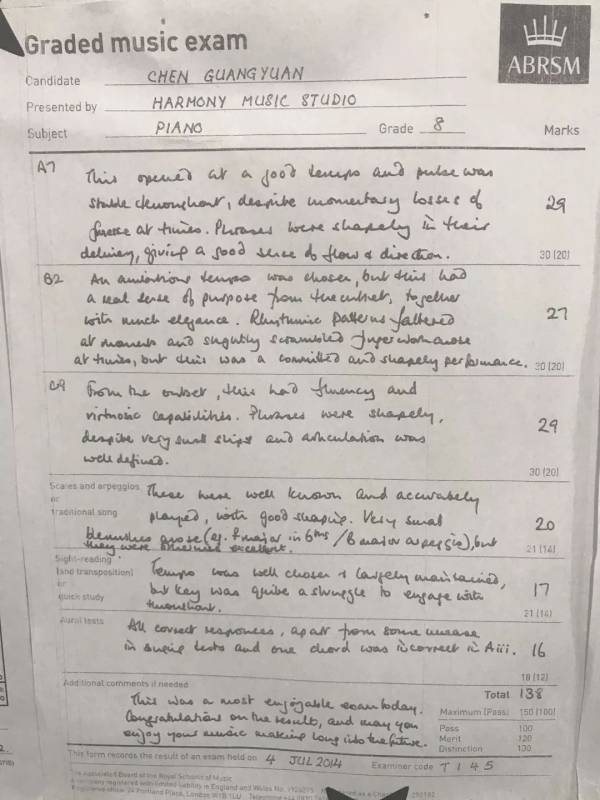 Graded music exam
ABRSM
Candidate CHEN GUANGYUAN
Presented by HARMONY MUSIC STUDIO
Subject PIANO Grade 8 Marks
A7 This opened at a good tempo and pulse was
stable throughout, despite momentary losses of 29
finesse at times. Phrases were shapely in their
delivery, giving a good sense of flow & direction. 30 (20)
B2 An ambitious tempo was chosen, but this had
a real sense of purpose from the outset, together
with much elegance. Rhythmic patterns faltered 27
at moments and slightly scrambled fingerwork arose
at times, but this was a committed and shapely performance. 30 (20)
C9 From the outset, this had fluency and
virtuosic capabilities. Phrases were shapely, 29
despite very small slips and articulation was
well defined.
30 (20)
Scales and arpeggios These were well known and accurately
or
traditional song played, with good shaping. Very small 20
blemishes arose (eg. F major in 6ths / B major arpeggio), but 21 (14)
they were otherwise excellent.
Sight-reading
(and transposition) Tempo was well chosen & largely maintained,
or
quick study but key was quite a struggle to engage with 17
throughout. 21 (14)
Aural tests All correct responses, apart from some unease
in singing tests and one chord was incorrect in Aiii. 16
18 (12)
Additional comments if needed Total 138
This was a most enjoyable exam today. Maximum (Pass) 150 (100)
Congratulations on the results, and may you Pass 100
enjoy your music making long into the future. Merit 120
Distinction 130
This form records the result of an exam held on 4 JUL 2014 Examiner code T145
The Associated Board of the Royal Schools of Music
A company registered with limited liability in England and Wales No. 1926395
Registered office: 24 Portland Place, London W1B 1LU